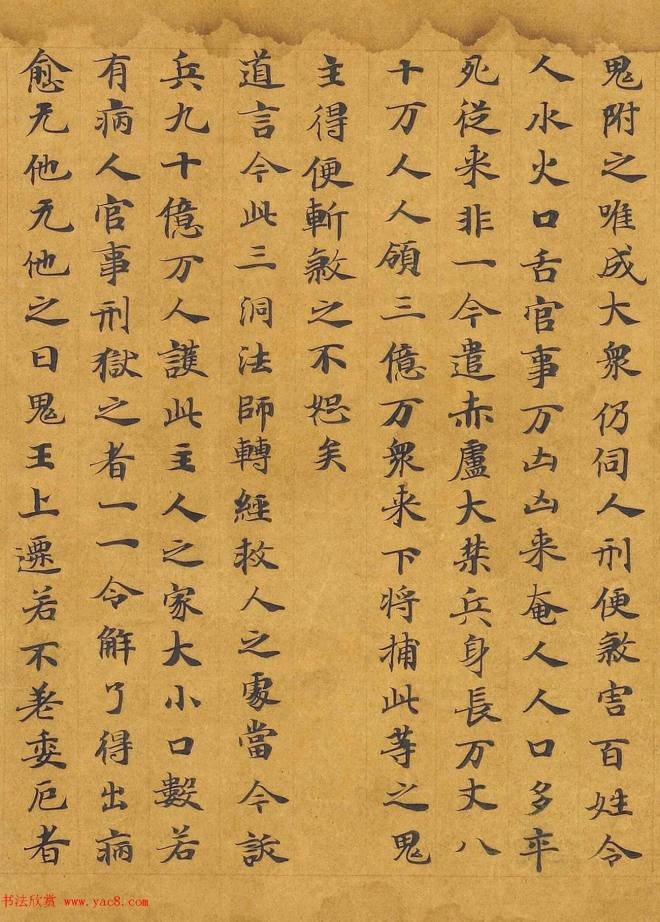 鬼附之唯成大衆仍伺人刑便煞害百姓令
人水火口舌官事万凶凶来奄人人口多卒
死從来非一今遣赤盧大桀兵身長万丈八
十万人人領三億万衆来下将捕此等之鬼
主得便斬煞之不恕矣
道言今此三洞法師轉經救人之處當令
兵九十億万人護此主人之家大小口數若
有病人官事刑獄之者一一令解了得出病
愈无他无他之日鬼王上遷若不差委厄者
书法欣赏 www.yac8.com